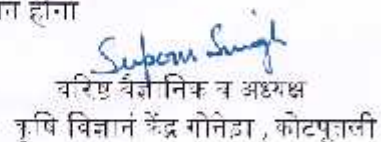 होगा
Singh
वरिष्ठ वैज्ञानिक व अध्यक्ष
कृषि विज्ञान केंद्र गोनेड़ा , कोटपूतली